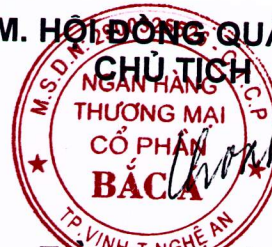 M. HỘI ĐỒNG QUẢ
CHỦ TỊCH
NGÂN HÀNG
THƯƠNG MẠI
CỔ PHẦN
BẮC Á
M.S.D.N:
C.P
TP.VINH-T.NGHỆ AN